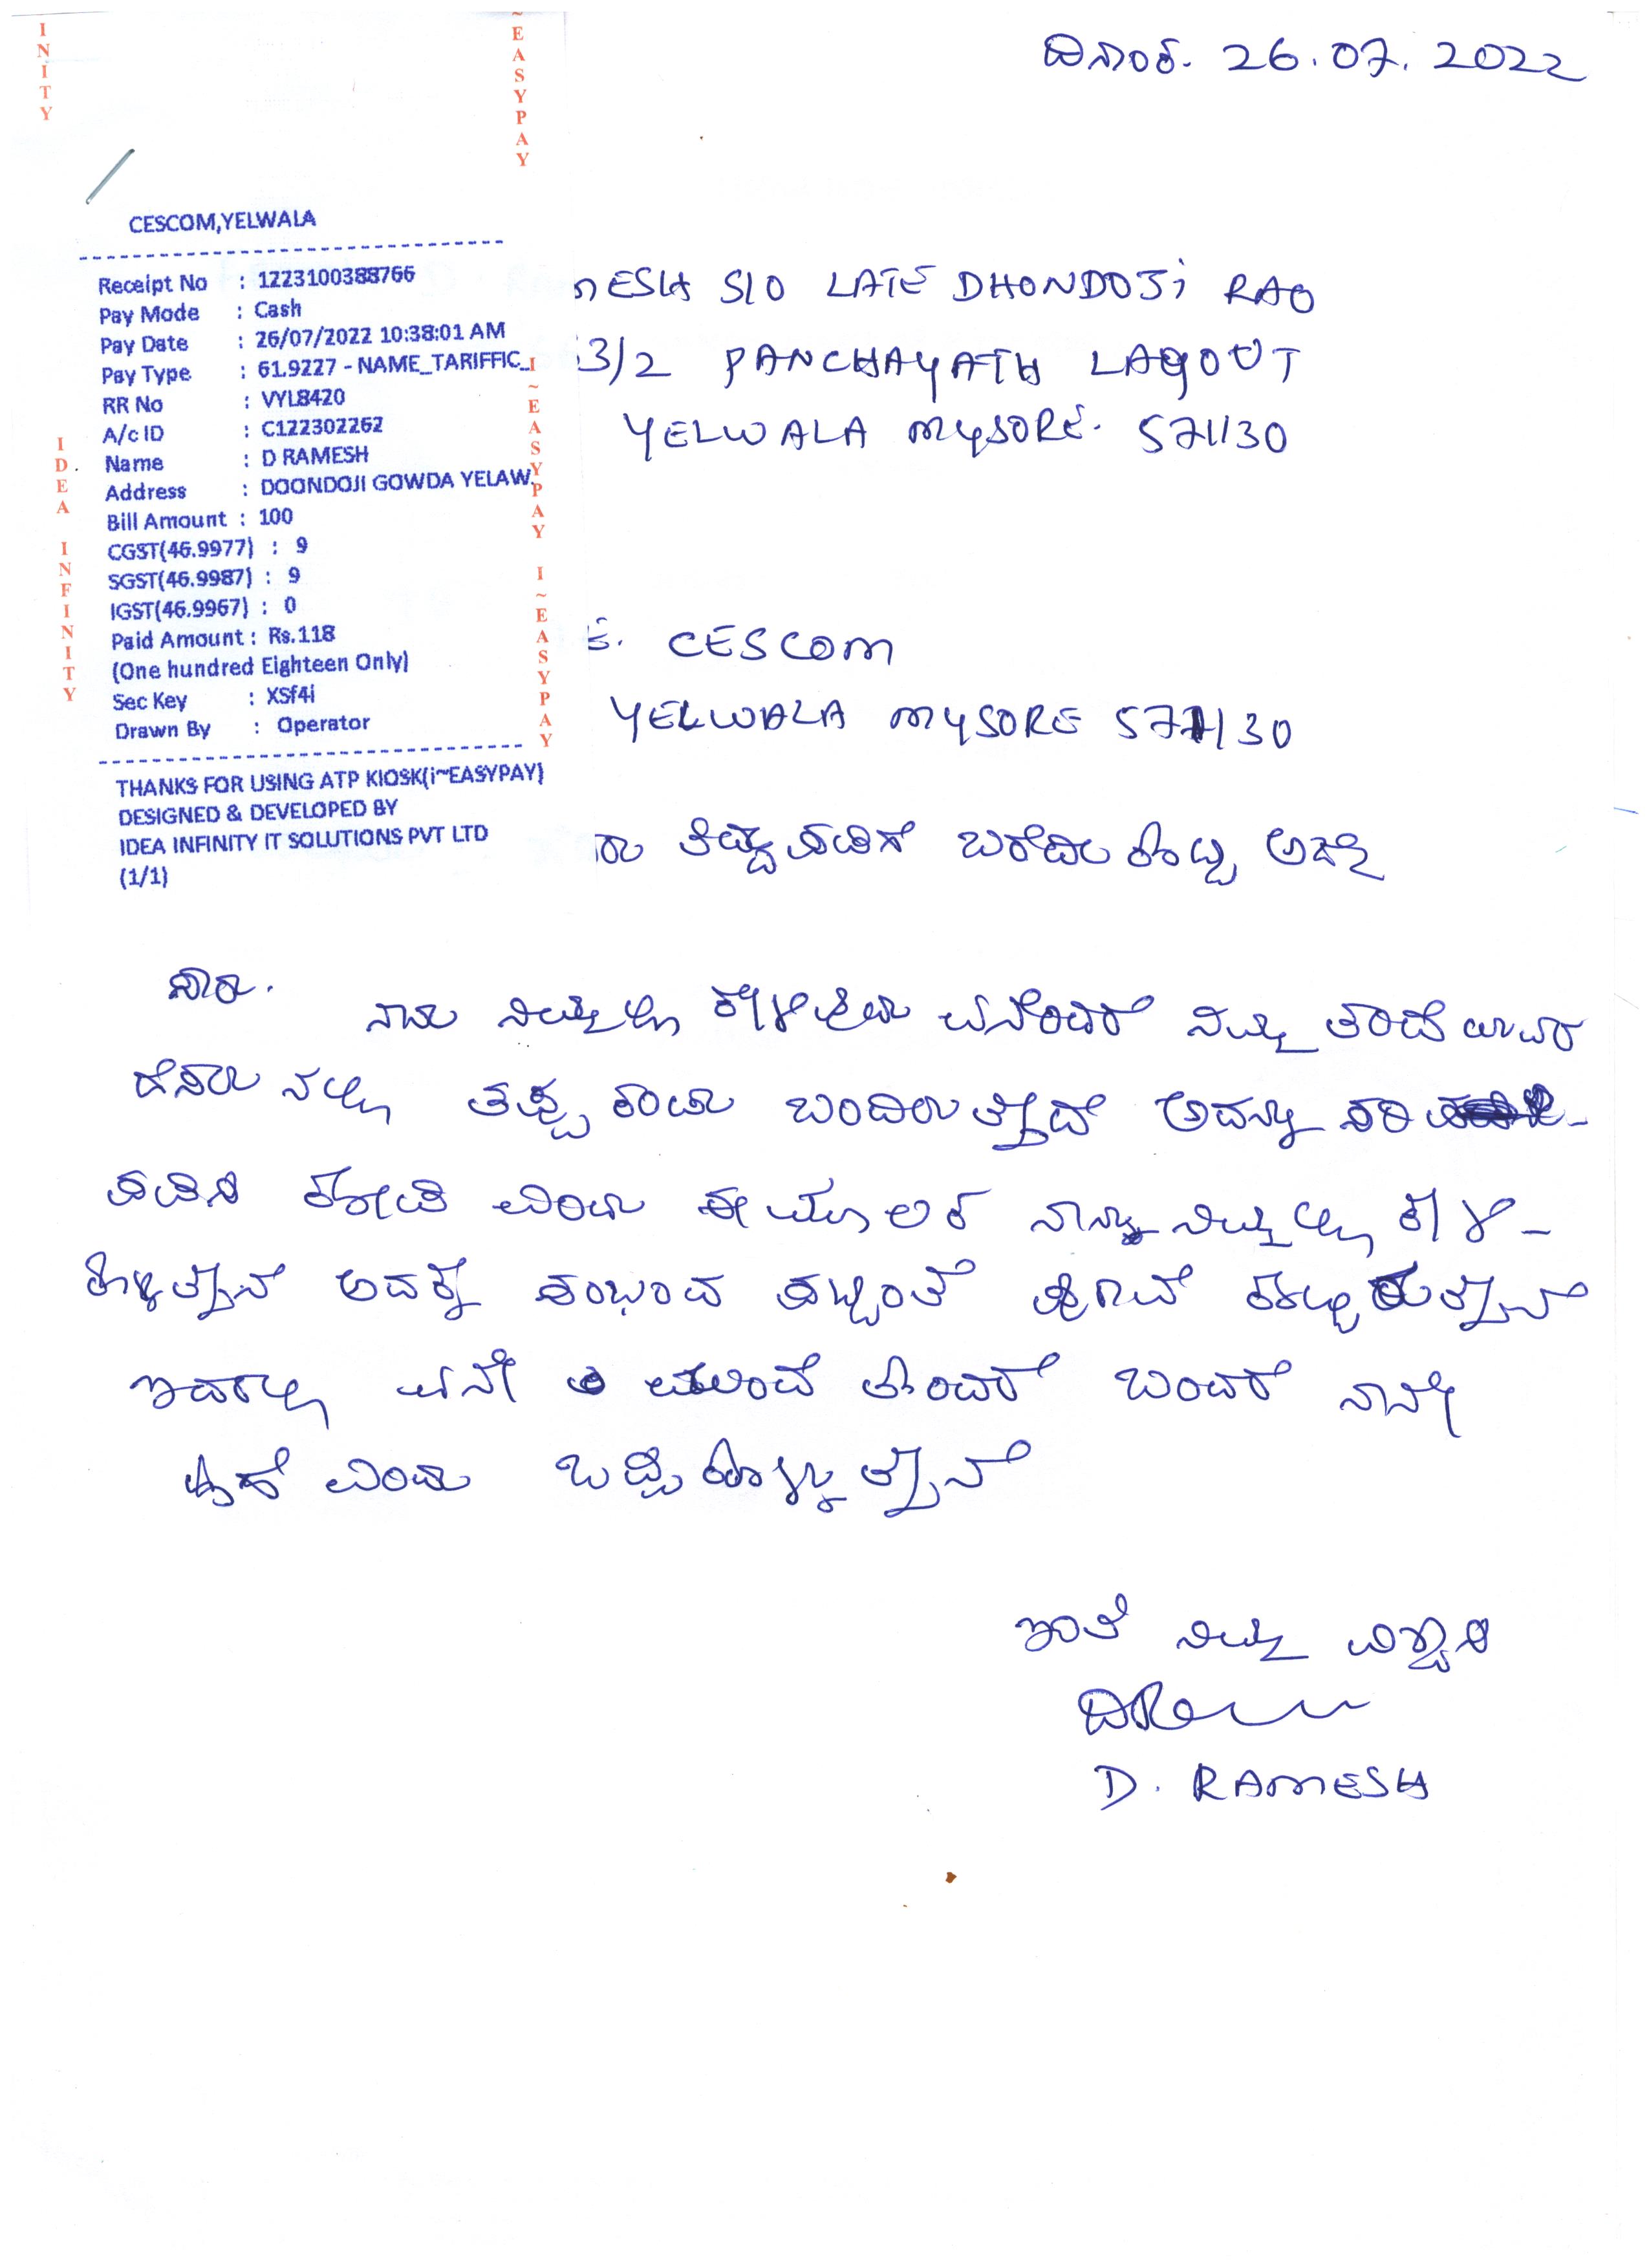 ದಿನಾಂಕ. 26.07.2022
INITY
~EASYPAY
CESCOM,YELWALA
Receipt No : 1223100388766
Pay Mode : Cash
Pay Date : 26/07/2022 10:38:01 AM
Pay Type : 61.9227 - NAME_TARIFFIC_
RR No : VYL8420
A/c ID : C122302262
Name : D RAMESH
Address : DOONDOJI GOWDA YELAW.
Bill Amount : 100
CGST(46.9977) : 9
SGST(46.9987) : 9
IGST(46.9967) : 0
Paid Amount : Rs.118
(One hundred Eighteen Only)
Sec Key : XSf4i
Drawn By : Operator
THANKS FOR USING ATP KIOSK(i~EASYPAY)
DESIGNED & DEVELOPED BY
IDEA INFINITY IT SOLUTIONS PVT LTD
(1/1)
IDEA INFINITY
I~EASYPAY I~EASYPAY
MESH S/O LATE DHONDOJi RAO
3/2 PANCHAYATH LAYOUT
YELWALA MYSORE. 571130
E. CESCOM
YELWALA MYSORE 571130
ಬರೆದು ಕೊಟ್ಟ ಅರ್ಜಿ
ಸಾರ್.
ನಾನು ನಿಮ್ಮಲ್ಲಿ ಏನೆಂದರೆ ನಮ್ಮ ತಂದೆಯವರ
ಹೆಸರು ನಲ್ಲಿ ತಪ್ಪು ಕಂಡು ಬಂದಿರುತ್ತದೆ ಅದನ್ನು ಸರಿ
ಪಡಿಸಿ ಕೊಡಿ ಎಂದು ಈ ಮೂಲಕ ನಾನು ನಿಮ್ಮಲ್ಲಿ ಕೇಳಿ-
ಕೊಳ್ಳುತ್ತೇನೆ ಅದಕ್ಕೆ ಸಂಭಂದ ಪಟ್ಟಂತೆ
ಇದರಲ್ಲಿ ಏನೇ ತೊಂದರೆ ಬಂದರೆ ನಾನೇ
ಎಂದು ಒಪ್ಪಿಕೊಳ್ಳುತ್ತೇನೆ
ಇಂತಿ ನಿಮ್ಮ ವಿಶ್ವಾಸಿ
D. RAMESH